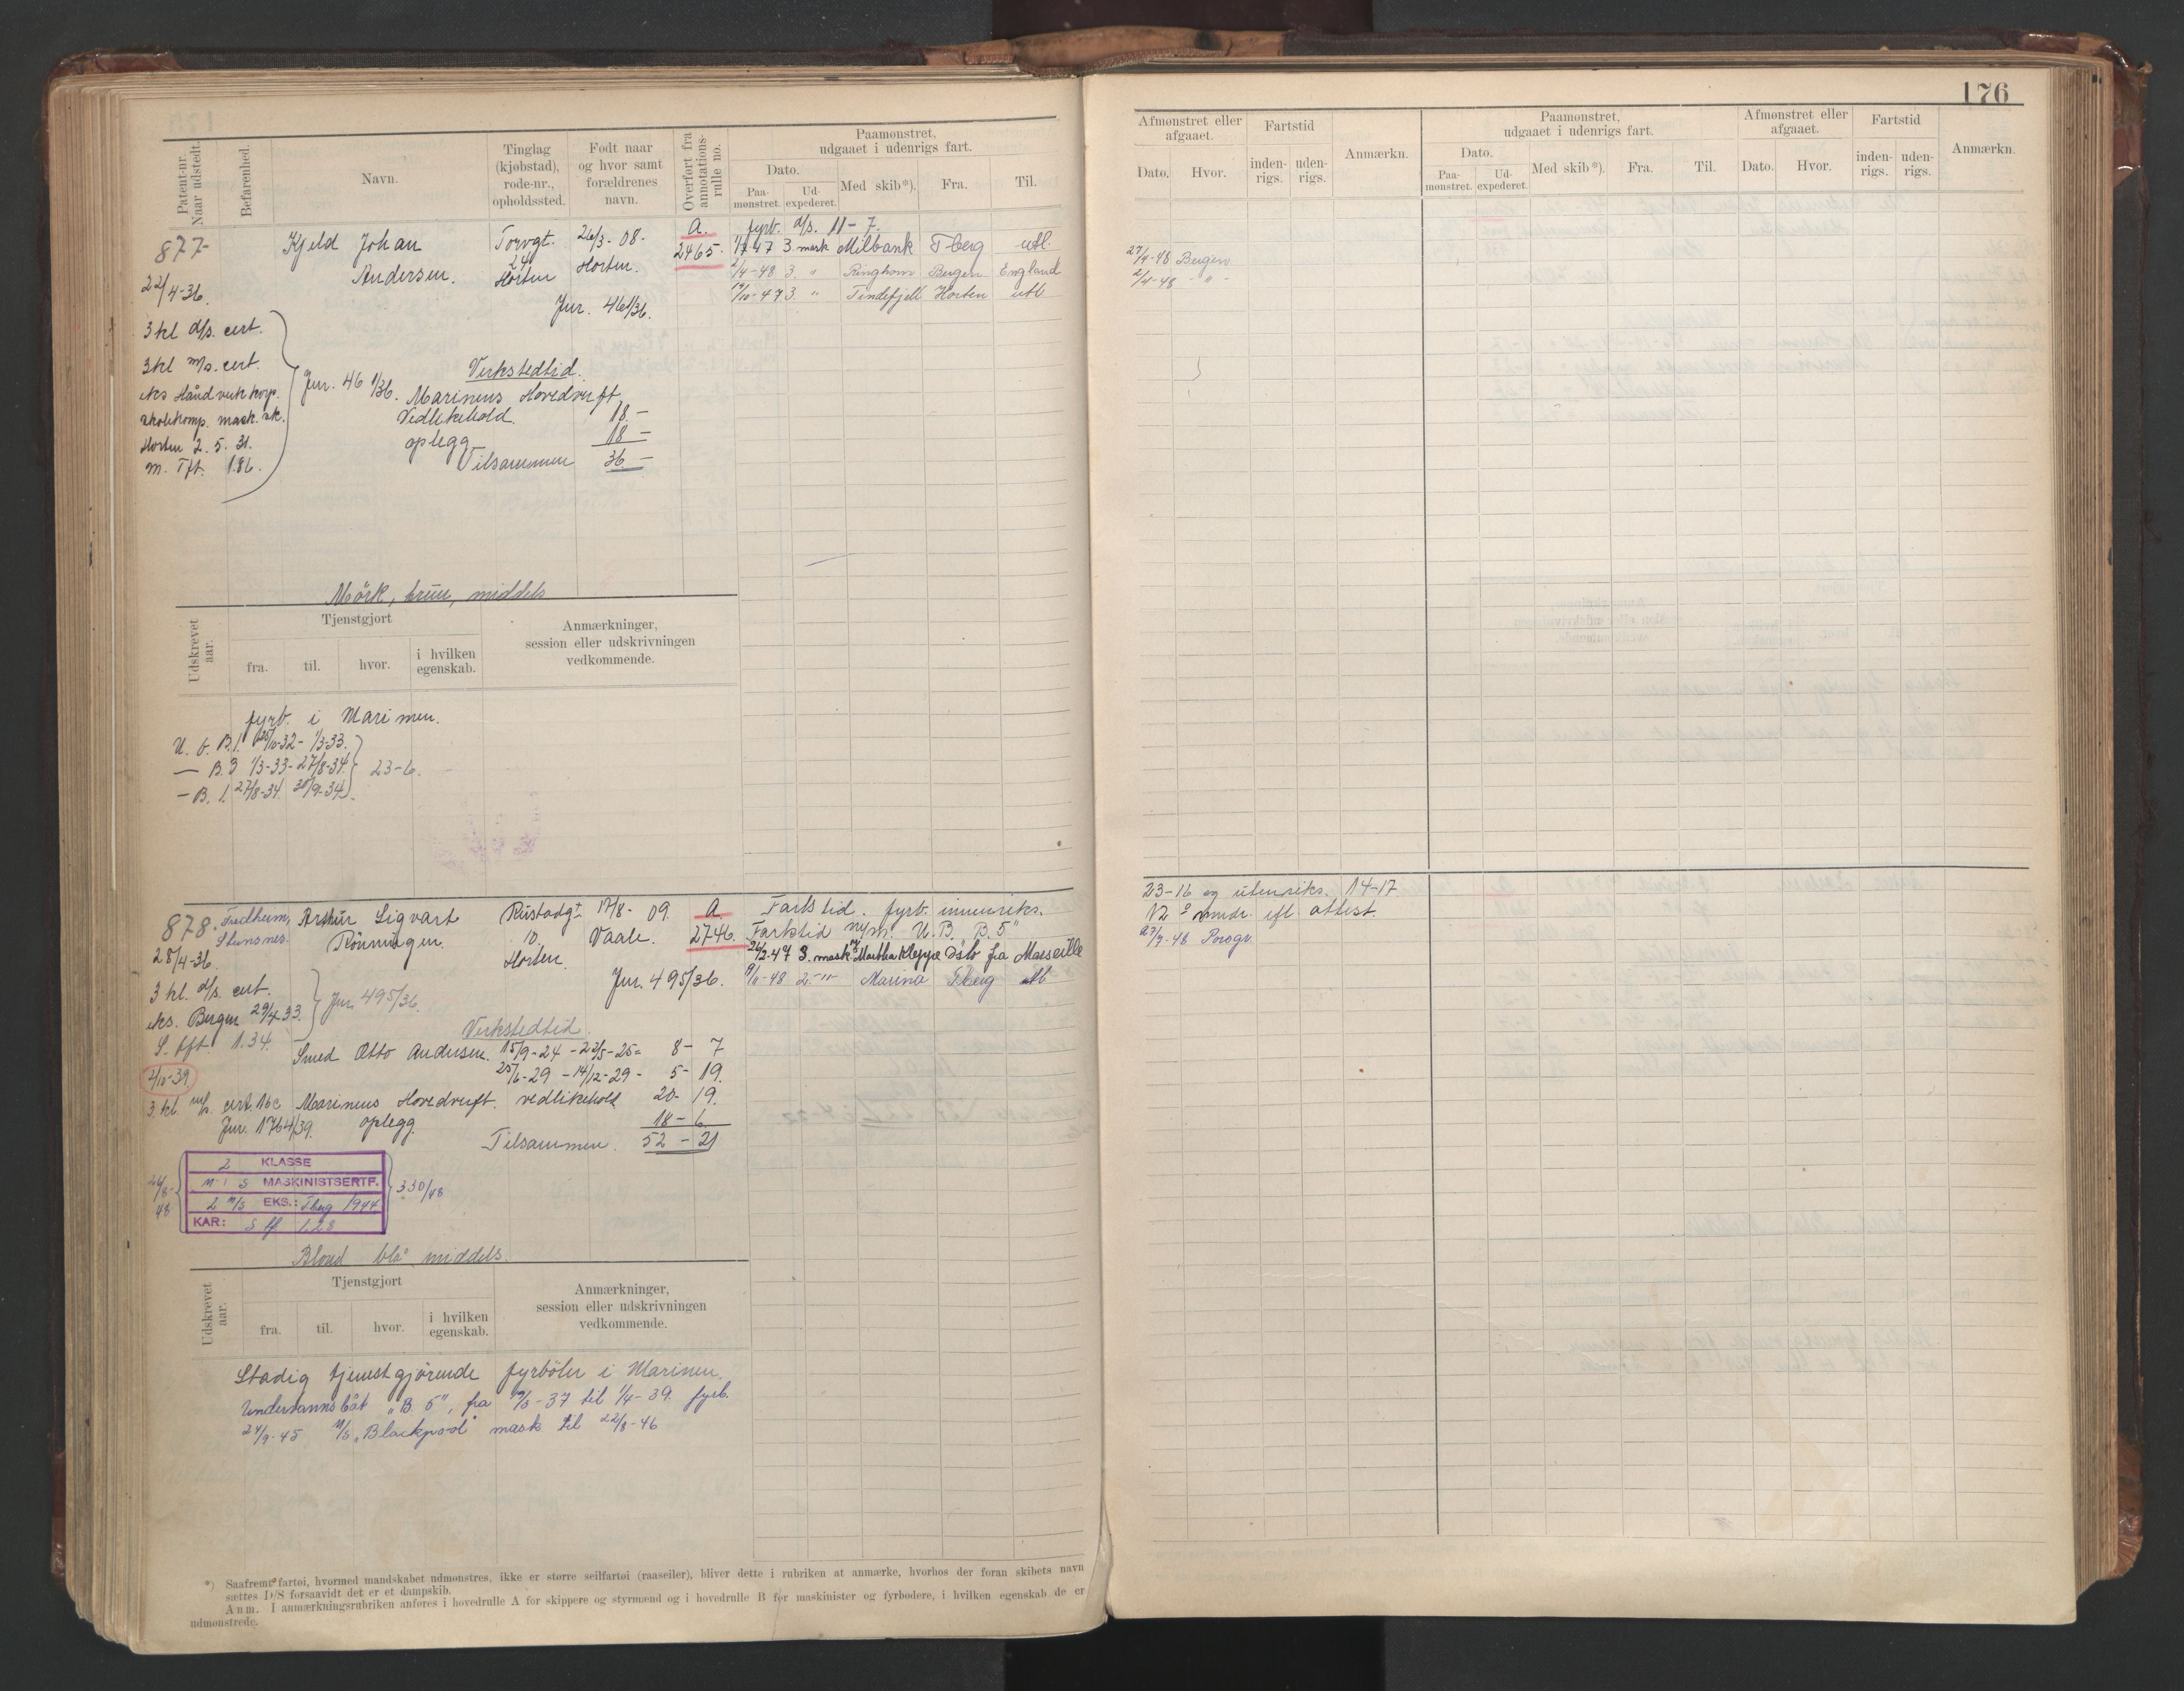 176
Patent-nr. Naar udstedt.
Befarenhed.
Navn.
Tinglag (kjøbstad), rode-nr., opholdssted.
Født naar og hvor samt forældrenes navn.
Overført fra annotations-rulle no.
Paamønstret, udgaaet i udenrigs fart.
Dato.
Paa-mønstret.
Ud-expederet.
Med skib*).
Fra.
Til.
877-
Kjeld Johan
Andersen.
Torvgt.
24
Horten
26/3-08-
Horten.
A.
2465-
fyrb. d/s. 11-7.
47 3. mask Milbank T-berg utl.
2/4-48 3. " Ringhorn Bergen England
/10-47 3. " Tindefjell Horten utl
22/4-36.
Jur. 461/36.
3 kl d/s. cert.
3 kl m/s. cert.
eks Håndverk korp.
skolekomp. mask. sk.
Horten 2. 5. 31.
m. Tft. 1.86.
Jur. 461/36.
Verkstedtid.
Marinens Hovedverft,
Vedlikehold. 18.-
oplegg 18-
Tilsammen 36-
Mörk, brun, middels
Udskrevet aar.
Tjenstgjort
fra.
til.
hvor.
i hvilken egenskab.
Anmærkninger,
session eller udskrivningen
vedkommende.
fyrb. i Marinen.
U. b. B.1. 25/10-32- 1/3-33.
— B.3 1/3-33-27/8-34. 23-6.
— B. 1. 27/8-34. 30/9-34.
878.
Fredheim,
Stensnes.
Arthur Sigvart
Rönningen.
Rustadgt
10.
Horten.
17/8- 09.
Vaale.
A.
2746.
Fartstid. fyrb. innenriks.
Farkstid nym. U.B. "B.5"
26/2-47 3. mask m/s Martha Kleppe Oslo fra Marseille
9/11-48 2. -"- Marina Tberg utl
28/4-36.
Jur. 495/36.
3 kl. d/s. cert.
eks. Bergen 29/4 33.
S. tft. 1.34.
Jur. 495/36.
4/10-39
3. kl. m/s. cert. 16c
Jur. 1764/39.
Verkstedtid.
Smed Otto Andersen. 15/9-24 - 22/5-25= 8- 7
25/6-29 - 14/12-29- 5- 19.
Marinens Hovedverft. vedlikehold 20- 19.
oplegg. 18- 6
Tilsammen. 52 - 21
26/8-48
2 KLASSE
M / S MASKINISTSERTF.
2 m/s EKS.: Tberg 1944
KAR: S tf 1.28
330/48
Blond blå middels.
Udskrevet aar.
Tjenstgjort
fra.
til.
hvor.
i hvilken egenskab.
Anmærkninger,
session eller udskrivningen
vedkommende.
Stadig tjenestgjörende fyrböter i Marinen.
Undervannsbåt "B 5", fra /5-37 til 1/4-39. fyrb.
24/9-45 M/S "Blackpool" mask til 22/8-46
*) Saafremt fartøi, hvormed mandskabet udmønstres, ikke er større seilfartøi (raaseiler), bliver dette i rubriken at anmærke, hvorhos der foran skibets navn
sættes D/S forsaavidt det er et dampskib.
Anm. I anmærkningsrubriken anføres i hovedrulle A for skippere og styrmænd og i hovedrulle B for maskinister og fyrbødere, i hvilken egenskab de er
udmønstrede.
Afmønstret eller afgaaet.
Dato.
Hvor.
Fartstid
inden-rigs.
uden-rigs.
Anmærkn.
Paamønstret,
udgaaet i udenrigs fart.
Dato.
Paa-mønstret.
Ud-expederet.
Med skib*).
Fra.
Til.
Afmønstret eller afgaaet.
Dato.
Hvor.
Fartstid
inden-rigs.
uden-rigs.
Anmærkn.
27/4-48 Bergen
2/4-48 -"-
23-16 og utenriks. 14-17
12 mndr. efl attest.
27/9-48 Porsgr.